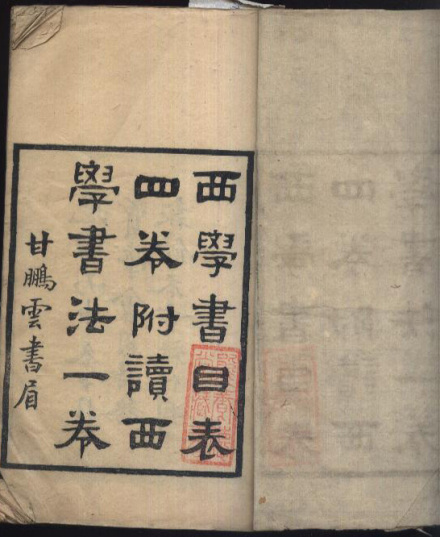 西學書目表
四卷附讀西
學書法一卷
甘鵬雲書眉